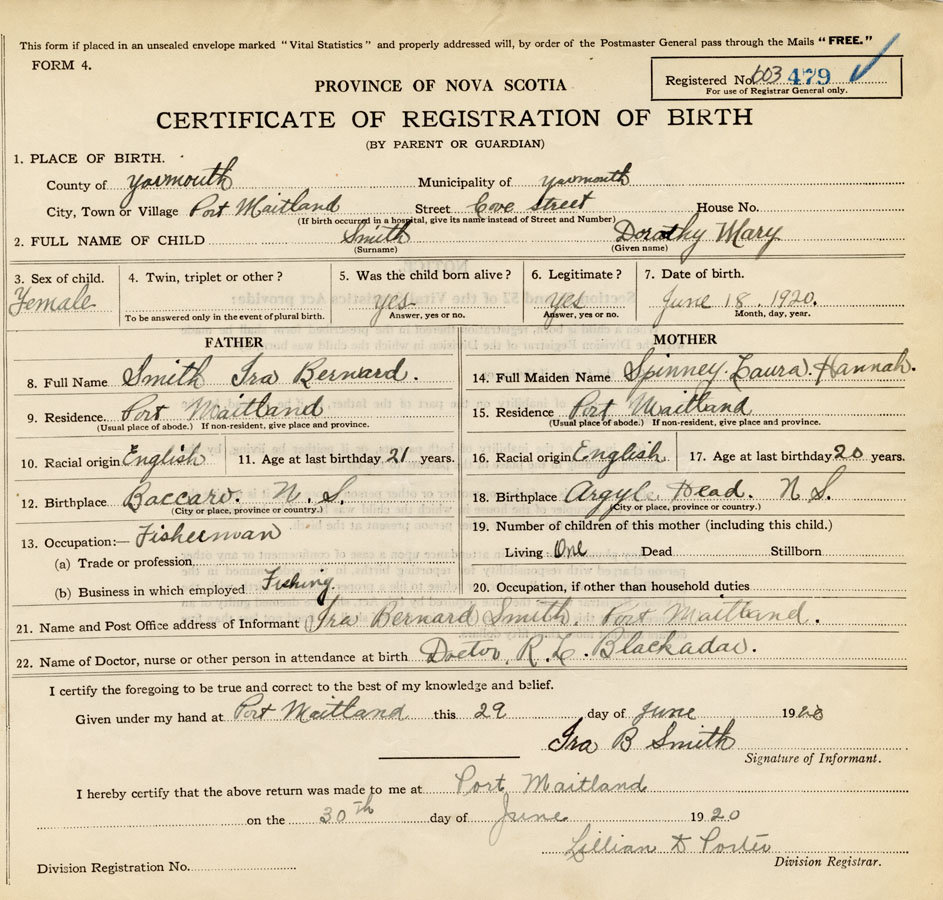 This form if placed in an unsealed envelope marked "Vital Statistics" and properly addressed will, by order of the Postmaster General pass through the Mails "FREE."
FORM 4.
Registered No. 603 479
For use of Registrar General only.
PROVINCE OF NOVA SCOTIA
CERTIFICATE OF REGISTRATION OF BIRTH
(BY PARENT OR GUARDIAN)
1. PLACE OF BIRTH.
County of Yarmouth Municipality of Yarmouth
City, Town or Village Port Maitland Street Cove Street House No.
(If birth occurred in a hospital, give its name instead of Street and Number)
2. FULL NAME OF CHILD Smith Dorothy Mary
(Surname) (Given name)
3. Sex of child. 4. Twin, triplet or other? 5. Was the child born alive? 6. Legitimate? 7. Date of birth.
Female yes yes June 18. 1920.
To be answered only in the event of plural birth. Answer, yes or no. Answer, yes or no. Month, day, year.
FATHER MOTHER
8. Full Name Smith Ira Bernard. 14. Full Maiden Name Spinney. Laura. Hannah.
9. Residence. Port Maitland 15. Residence Port Maitland
(Usual place of abode.) If non-resident, give place and province. (Usual place of abode.) If non-resident, give place and province.
10. Racial origin English 11. Age at last birthday 21 years. 16. Racial origin English. 17. Age at last birthday 20 years.
12. Birthplace Baccaro. N. S. 18. Birthplace Argyle Head. N S.
(City or place, province or country.) (City or place, province or country.)
13. Occupation:— Fisherman 19. Number of children of this mother (including this child.)
(a) Trade or profession Living One Dead Stillborn
(b) Business in which employed Fishing. 20. Occupation, if other than household duties
21. Name and Post Office address of Informant (Ira Bernard) Smith. Port Maitland.
22. Name of Doctor, nurse or other person in attendance at birth Doctor. R. L. Blackadar.
I certify the foregoing to be true and correct to the best of my knowledge and belief.
Given under my hand at Port Maitland this 29 day of June 1920
Ira B Smith
Signature of Informant.
I hereby certify that the above return was made to me at Port Maitland
on the 30th day of June 1920
Lillian D Porter
Division Registrar.
Division Registration No.